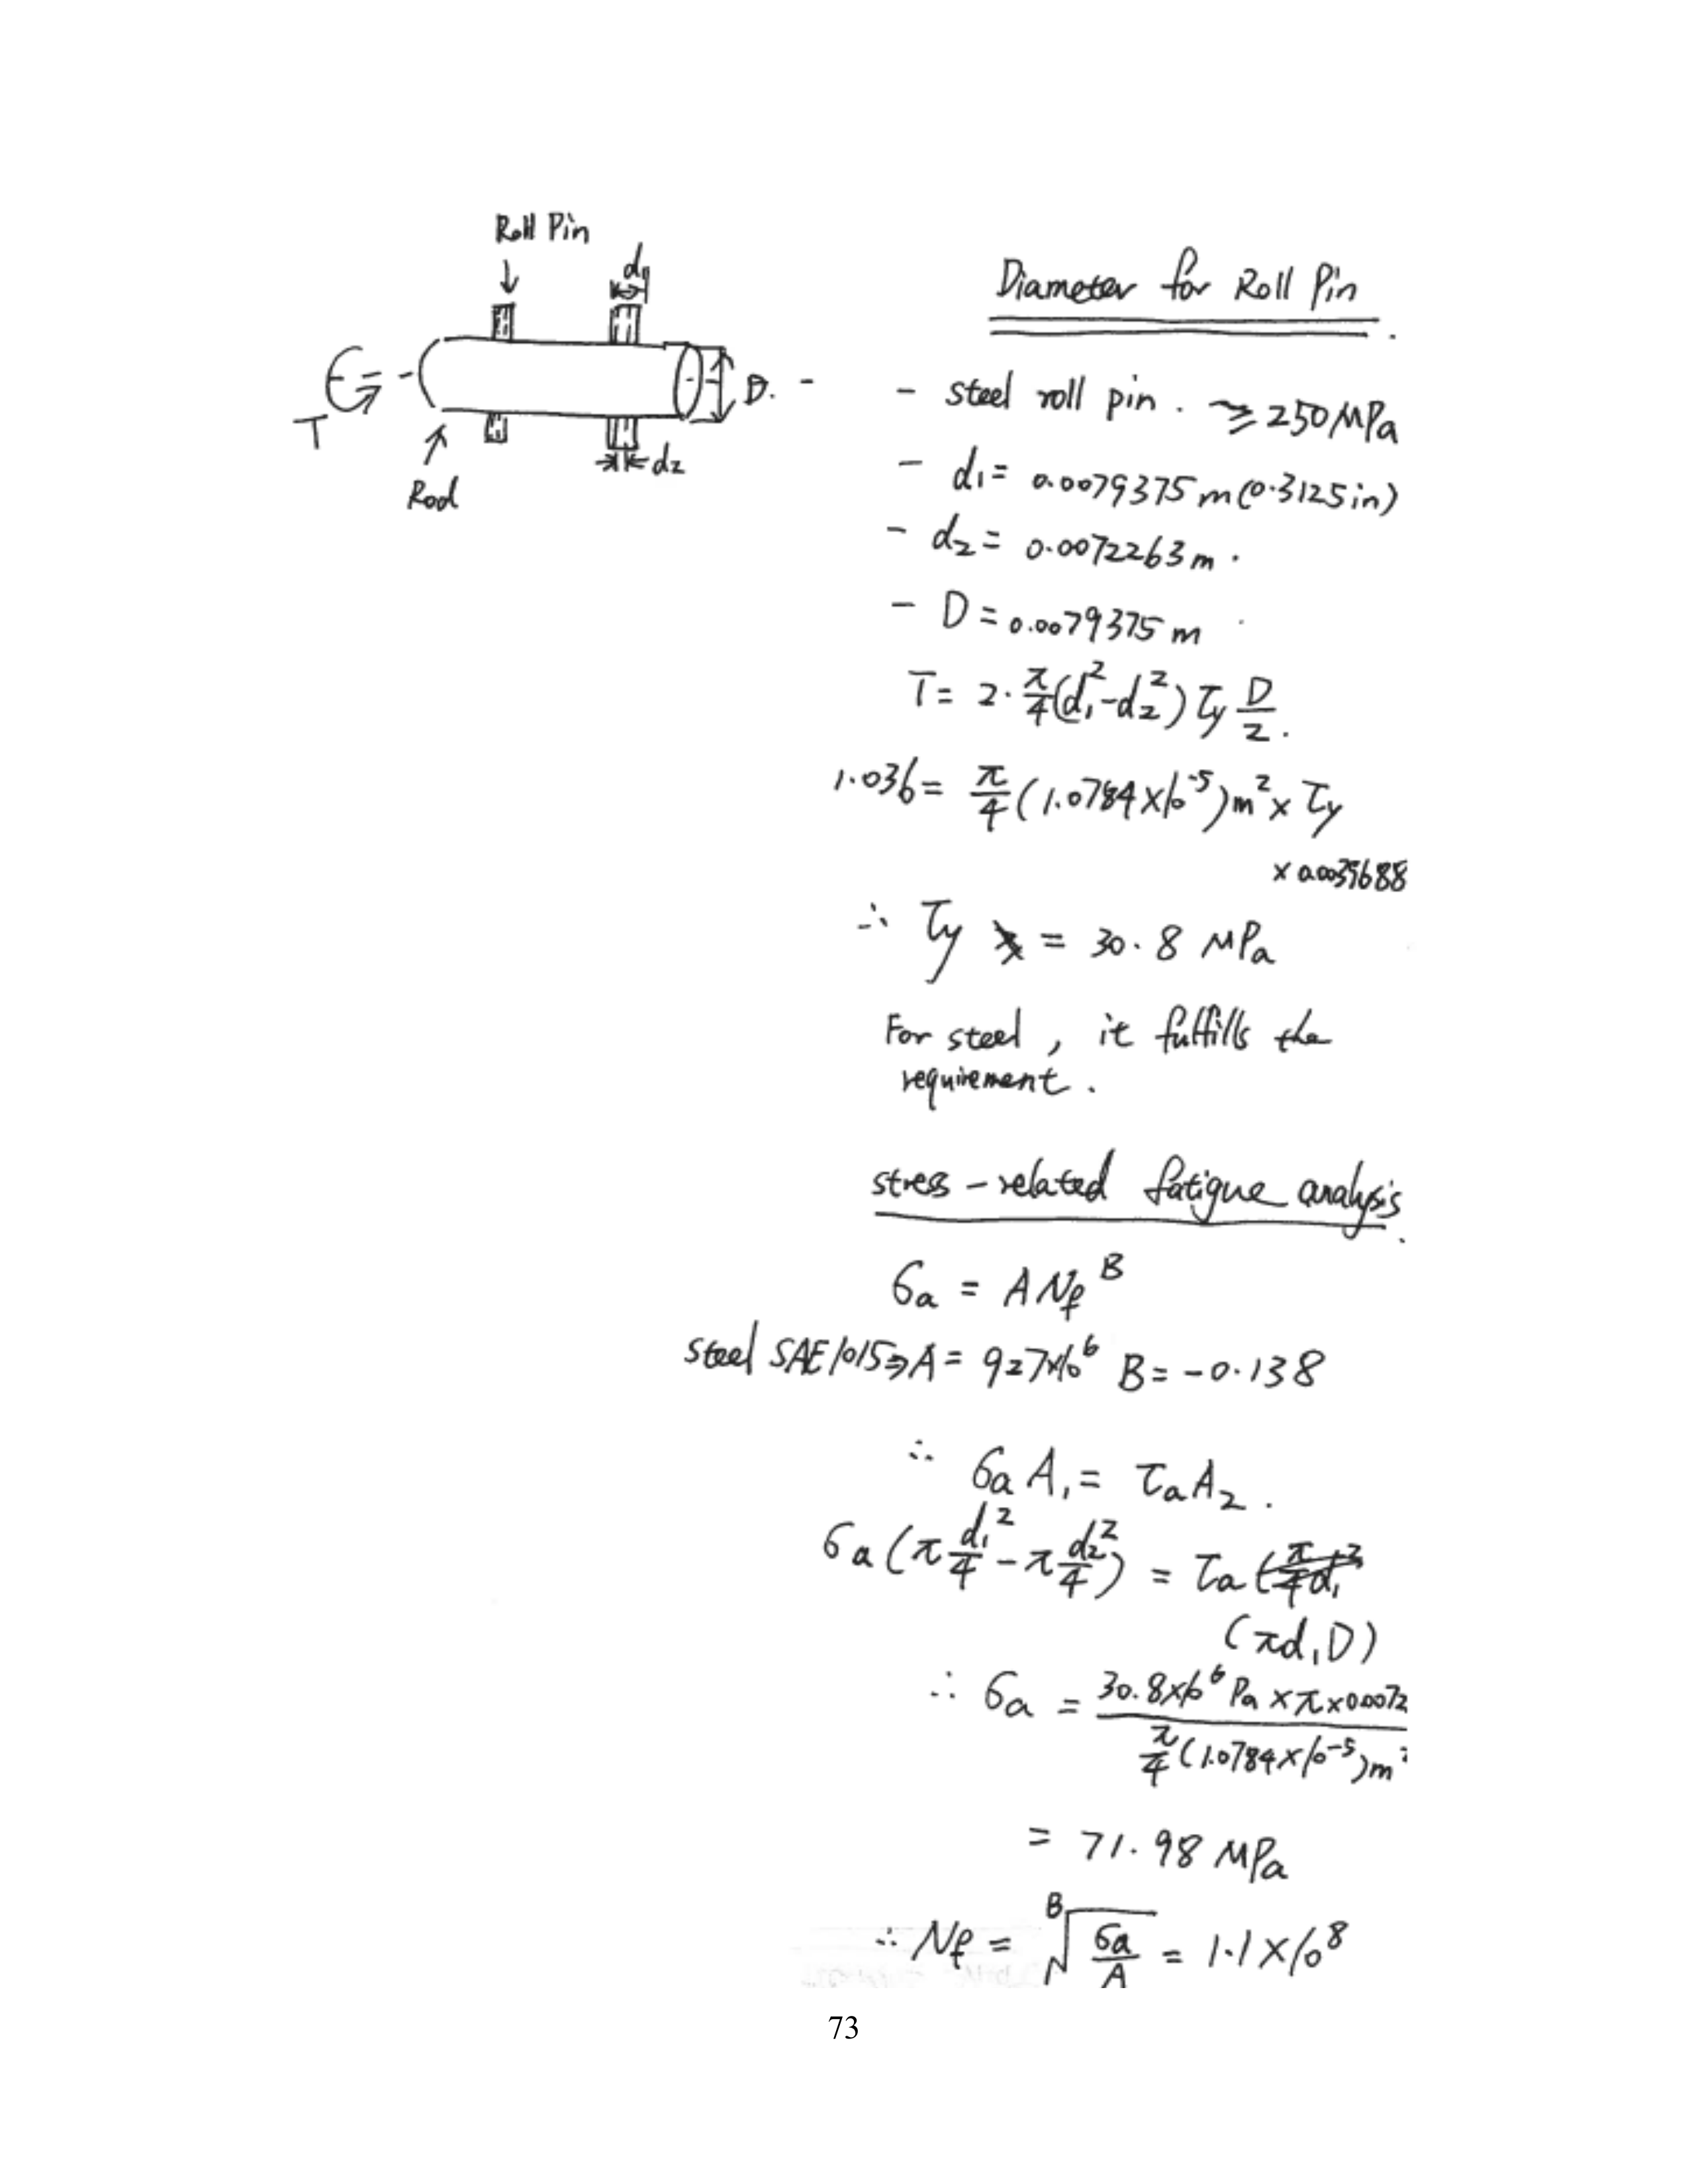 Roll Pin
d1
T
D.
d2
Rod
Diameter for Roll Pin.
- steel roll pin. ≥ 250 MPa
- d1 = 0.0079375 m (0.3125 in)
- d2 = 0.0072263 m.
- D = 0.0079375 m
T = 2 · π/4 (d1² - d2²) τy D/2.
1.036 = π/4 (1.0784 × 10⁻⁵) m² × τy
× 0.0039688
∴ τy = 30.8 MPa
For steel, it fulfills the
requirement.
stress-related fatigue analysis.
σa = A Nf^B
steel SAE 1015 ⇒ A = 927×10⁶ B = -0.138
∴ σa A1 = τa A2.
σa (π d1²/4 - π d2²/4) = τa (π/4 d1²
(π d1 D)
∴ σa = 30.8×10⁶ Pa × π × 0.0072 / π/4 (1.0784 × 10⁻⁵) m²
= 71.98 MPa
∴ Nf = B√(σa/A) = 1.1 × 10⁸
73